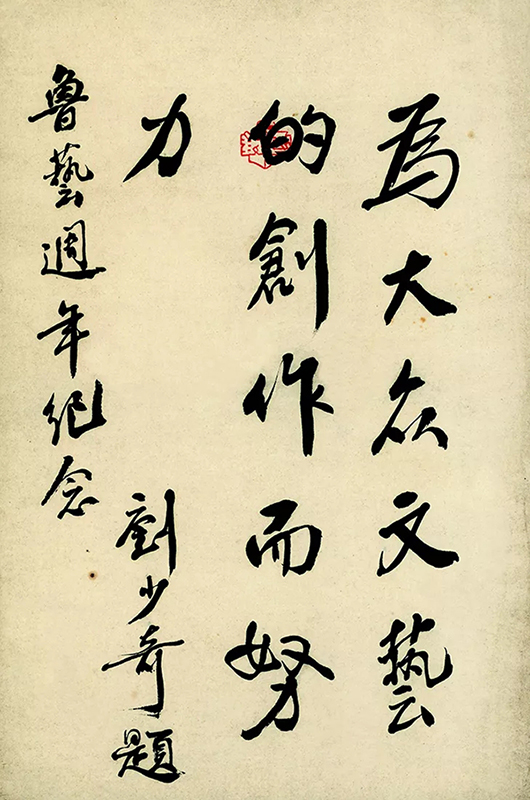 為大众文藝
的創作而努
力
劉少奇題
魯藝週年纪念